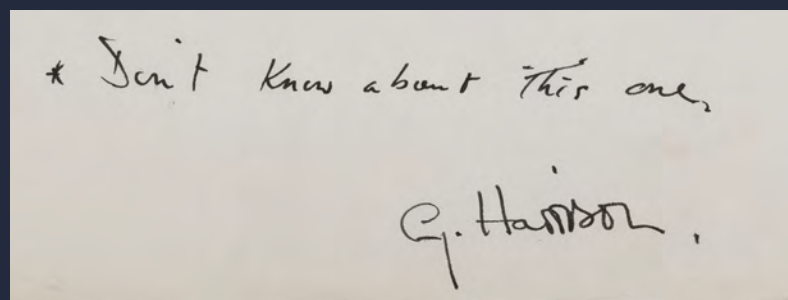 * Don't Know about this one,
G. Harrison.